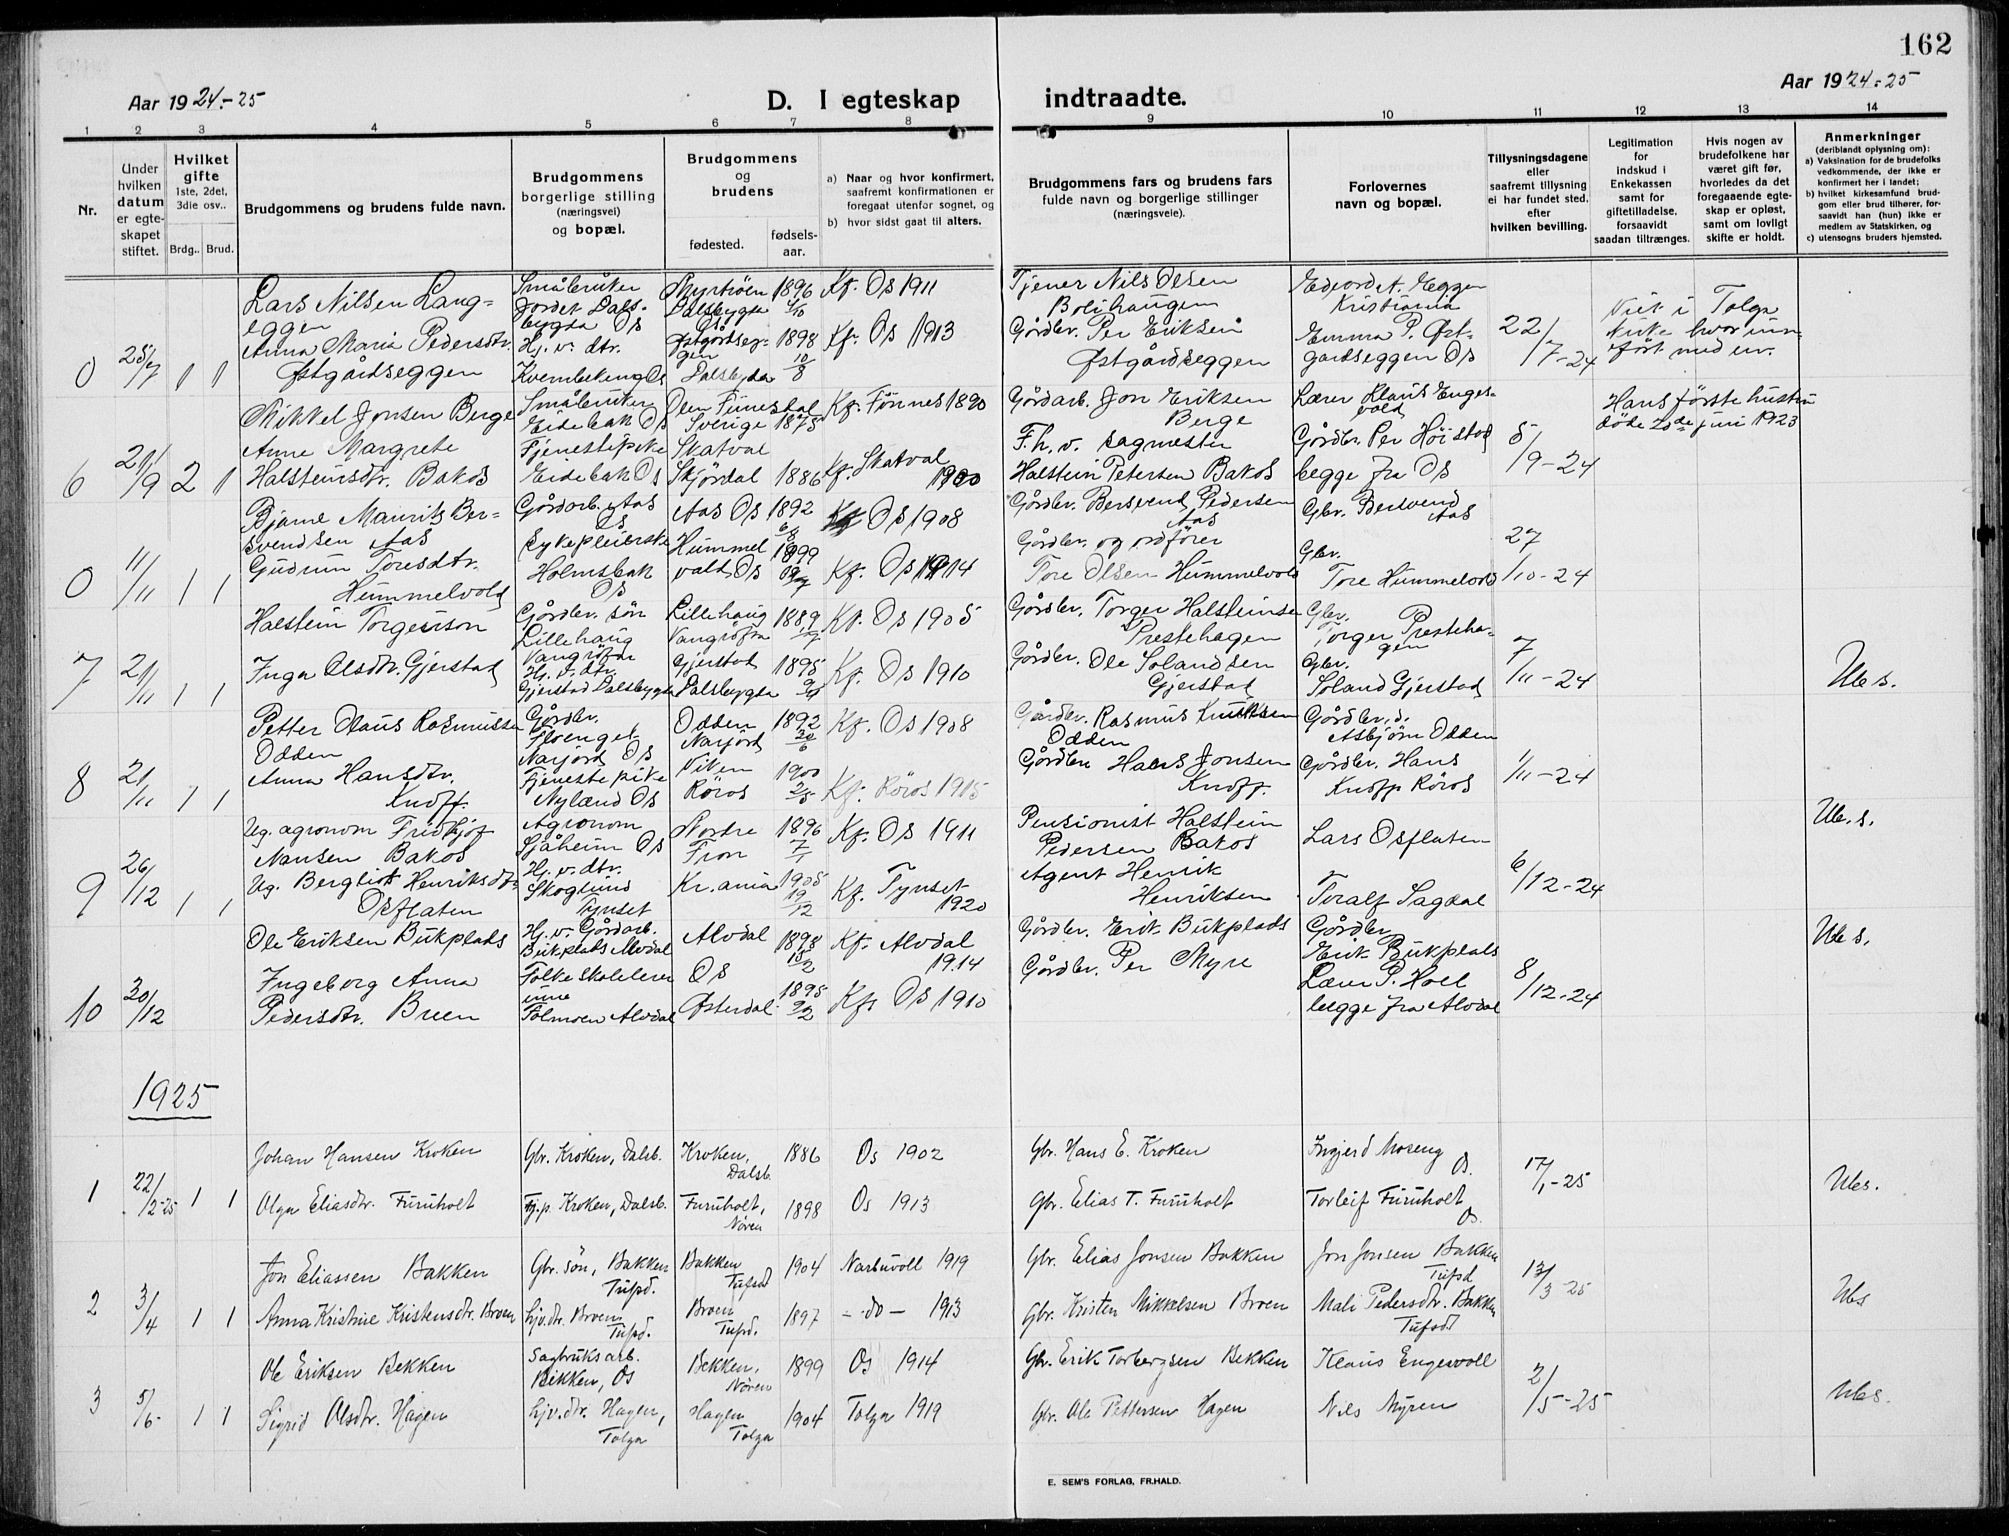 162
Aar 1924.-25
D. I egteskap indtraadte.
Aar 1924-25
1 2 3 4 5 6 7 8 9 10 11 12 13 14
Nr.
Under hvilken datum er egteskapet stiftet.
Hvilket gifte 1ste, 2det, 3die osv..
Brdg.. Brud.
Brudgommens og brudens fulde navn.
Brudgommens borgerlige stilling (næringsvei) og bopæl.
Brudgommens og brudens
fødested.
fødselsaar.
a) Naar og hvor konfirmert, saafremt konfirmationen er foregaat utenfor sognet, og
b) hvor sidst gaat til alters.
Brudgommens fars og brudens fars fulde navn og borgerlige stillinger (næringsveie).
Forlovernes navn og bopæl.
Tillysningsdagene eller saafremt tillysning ei har fundet sted, efter hvilken bevilling.
Legitimation for indskud i Enkekassen samt for giftetilladelse, forsaavidt saadan tiltrænges.
Hvis nogen av brudefolkene har været gift før, hvorledes da det foregaaende egteskap er opløst, samt om lovligt skifte er holdt.
Anmerkninger (deriblandt oplysning om):
a) Vaksination for de brudefolks vedkommende, der ikke er konfirmert her i landet;
b) hvilket kirkesamfund brudgom eller brud tilhører, forsaavidt han (hun) ikke er medlem av Statskirken, og
c) utensogns bruders hjemsted.
0 25/7 1 1
Lars Nilsen Langeggen
Småbruker Jordet Dalsbygda Os
Dalsbygda Os 1896
Kf. Os 1911
Tjener Nils Olsen Bolihaugen
Eggen Kristiania
22/7-24
Viet i Tolga
Anna Maria Pedersdtr. Østgårdseggen
Hj. v. dtr. Kvernbekeng Os
Østgårdseggen Dalsbygda 1898 10/8
Kf. Os 1913
Gårdbr. Per Eriksen Østgårdseggen
Emma P. Østgardseggen Os
6 21/9 2 1
Mikkel Jonsen Berge
Småbruker Eidebak Os
Sverige 1875
Kf. Fünnes 1890
Gårdarb. Jon Eriksen Berge
Lærer Klaus Engesvold
5/9-24
Hans første hustru døde juni 1923
Anne Margrete Halsteinsdtr. Bakos
Tjenestepike Eidebak Os
Skatval Stjørdal 1886
Kf. Skatval 1900
F.h.v. sagmester Halstein Petersen Bakos
Gårdbr. Per Höistad begge fra Os
0 11/11 1 1
Bjarne Maurits Bersvendsen Aas
Gårdarb. Aas Os
Aas Os 1892 6/8
Kf. Os 1908
Gårdbr. Bersvend Pedersen Aas
Gbr. Bersvend Aas
27/10-24
Gudrun Toresdtr. Hummelvold
Sykepleierske Holmsbak Os
Hummelvold Os 1899
Kf. Os 1914
Gårdbr. og ordfører Tore Olsen Hummelvold
Gbr. Tore Hummelvold
7 21/11 1 1
Halstein Torgerson
Gårdbr. sön Lillehaug Vangröfta
Lillehaug Vangröfta 1889
Kf. Os 1905
Gårdbr. Torger Halsteinsen Prestehagen
Gbr. Torger Prestehagen
7/11-24
Ubs.
Inga Olsdtr. Gjerstad
Hj. v. dtr. Gjerstad Dalsbygda
Gjerstad Dalsbygda 1895
Kf. Os 1910
Gårdbr. Ole Solandsen Gjerstad
Gbr. Soland Gjerstad
8 21/11 1 1
Petter Olaus Rasmussen Odden
Gårdbr. Stenget Narjord Os
Odden Narjord 1892 20/6
Kf. Os 1908
Gårdbr. Rasmus Knutsen Odden
Gårdbr. s. Asbjørn Odden
1/11-24
Anna Hansdtr. Knoff.
Tjenestepike Nyland Os
Viken Röros 1900 2/5
Kf. Röros 1915
Gårdbr. Hans Jonsen Knoff.
Gårdbr. Hans Knoff Röros
9 26/12 1 1
Ug. agronom Fridtjof Nansen Bakos
Agronom Sjåheim Os
Nordre Tron 1896 7/1
Kf. Os 1911
Pensionist Halstein Pedersen Bakos
Lars Osflaten
6/12-24
Ub.s.
Ug. Bergliot Henriksdtr. Osflaten
Hj. v. dtr. Skoglund Tynset
Kr.ania 1905 19/12
Kf. Tynset 1920
Agent Henrik Henriksen
Toralf Sagdal
10 30/12
Ole Eriksen Bukplads
Hj. v. Gårdarb. Bukplads Alvdal
Alvdal 1898
Kf. Alvdal 1914
Gårdbr. Erik Bukplads
Gårdbr. Erik Bukplads
8/12-24
Ub s.
Ingeborg Anna Pedersdtr. Breen
Folkeskolelærerinne Tolmoen Alvdal
Os Østerdal 1895 9/2
Kf. Os 1910
Gårdbr. Per Myre
Lærer P. Hoel begge fra Alvdal
1925
1 22/2-25 1 1
Johan Hansen Kroken
Gbr. Kroken, Dalsb.
Kroken, Dalsb. 1886
Os 1902
Gbr. Hans E. Kroken
Ingjerd Moseng Os
17/1-25
Ubs.
Olga Eliasdtr. Furuholt
Tj.p. Kroken, Dalsb.
Furuholt, Nören 1898
Os 1913
Gbr. Elias T. Furuholt
Torleif Furuholt Os
2 3/4 1 1
Jon Eliassen Bakken
Gbr. sön, Bakken Tufsd.
Bakken Tufsd 1904
Narbuvoll 1919
Gbr. Elias Jonsen Bakken
Jon Jonsen Bakken Tufsd
13/3-25
Ubs
Anna Kristine Kristensdtr. Broen
Hjv.dtr. Broen Tufsd.
Broen Tufsd. 1897
- do - 1913
Gbr. Kristen Mikkelsen Broen
Mali Pedersdtr. Bakken Tufsd
3 5/6- 1 1
Ole Eriksen Bekken
Sagbruksarb. Bekken, Os
Bekken, Nören 1899
Os 1914
Gbr. Erik Torbergsen Bekken
Klaus Engesvoll
2/5-25
Ubs.
Sigrid Olsdtr. Hagen
Hjv.dtr. Hagen, Tolga
Hagen Tolga 1904
Tolga 1919
Gbr. Ole Pettersen Hagen
Nils Myren
E. SEM'S FORLAG, FR.HALD.